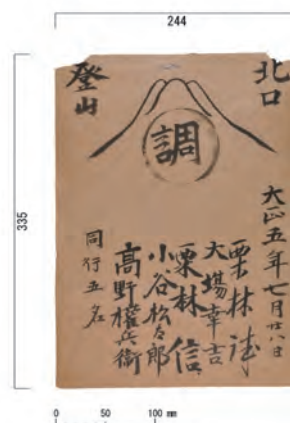 244
北口
調
登山
335
大正五年七月廿八日
栗林
大場幸吉
栗林信
小谷松太郎
高野權兵衛
同行五名
0 50 100 mm